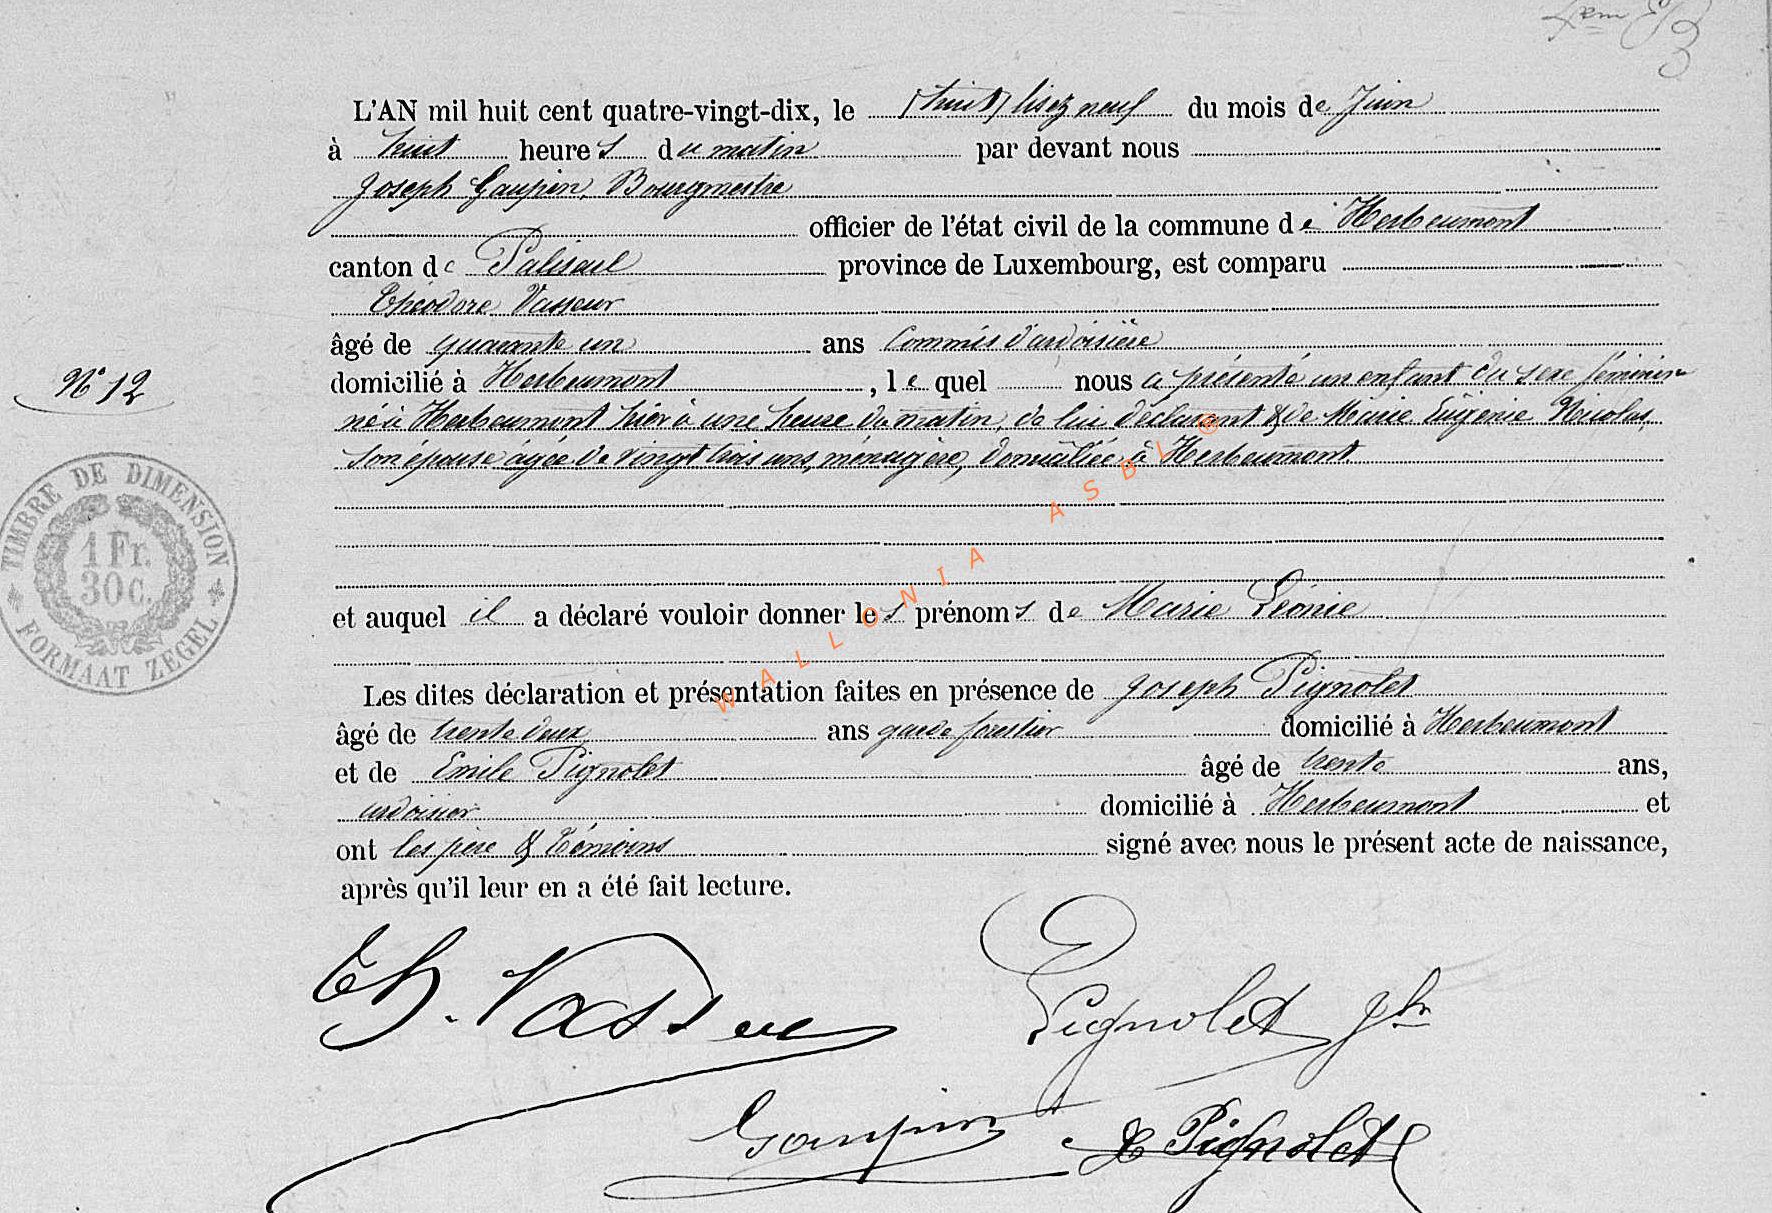 L'AN mil huit cent quatre-vingt-dix, le (huit) lisez neuf du mois de Juin
à huit heures du matin par devant nous
Joseph Gaupin, Bourgmestre
officier de l'état civil de la commune de Herbeumont
canton de Paliseul province de Luxembourg, est comparu
Théodore Vasseur
âgé de quarante un ans Commis d'ardoisière
domicilié à Herbeumont, lequel nous a présenté un enfant du sexe féminin
N° 12
né à Herbeumont hier à une heure du matin, de lui déclarant & de Marie Eugénie Nicolas,
son épouse âgée de vingt trois ans, ménagère, domiciliée à Herbeumont
TIMBRE DE DIMENSION
1 Fr.
30 c.
FORMAAT ZEGEL
WALLONIA ASBL ®
et auquel il a déclaré vouloir donner les prénoms de Marie Léonie
Les dites déclaration et présentation faites en présence de Joseph Pignolet
âgé de trente deux ans garde forestier domicilié à Herbeumont
et de Emile Pignolet âgé de trente ans,
ardoisier domicilié à Herbeumont et
ont les père & témoins signé avec nous le présent acte de naissance,
après qu'il leur en a été fait lecture.
Th. Vasseur
Pignolet Jh
Gaupin
E Pignolet